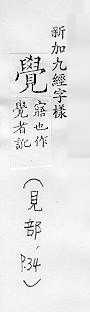 新加九經字樣
覺
寤也作
覺者訛
（見部，P.34）